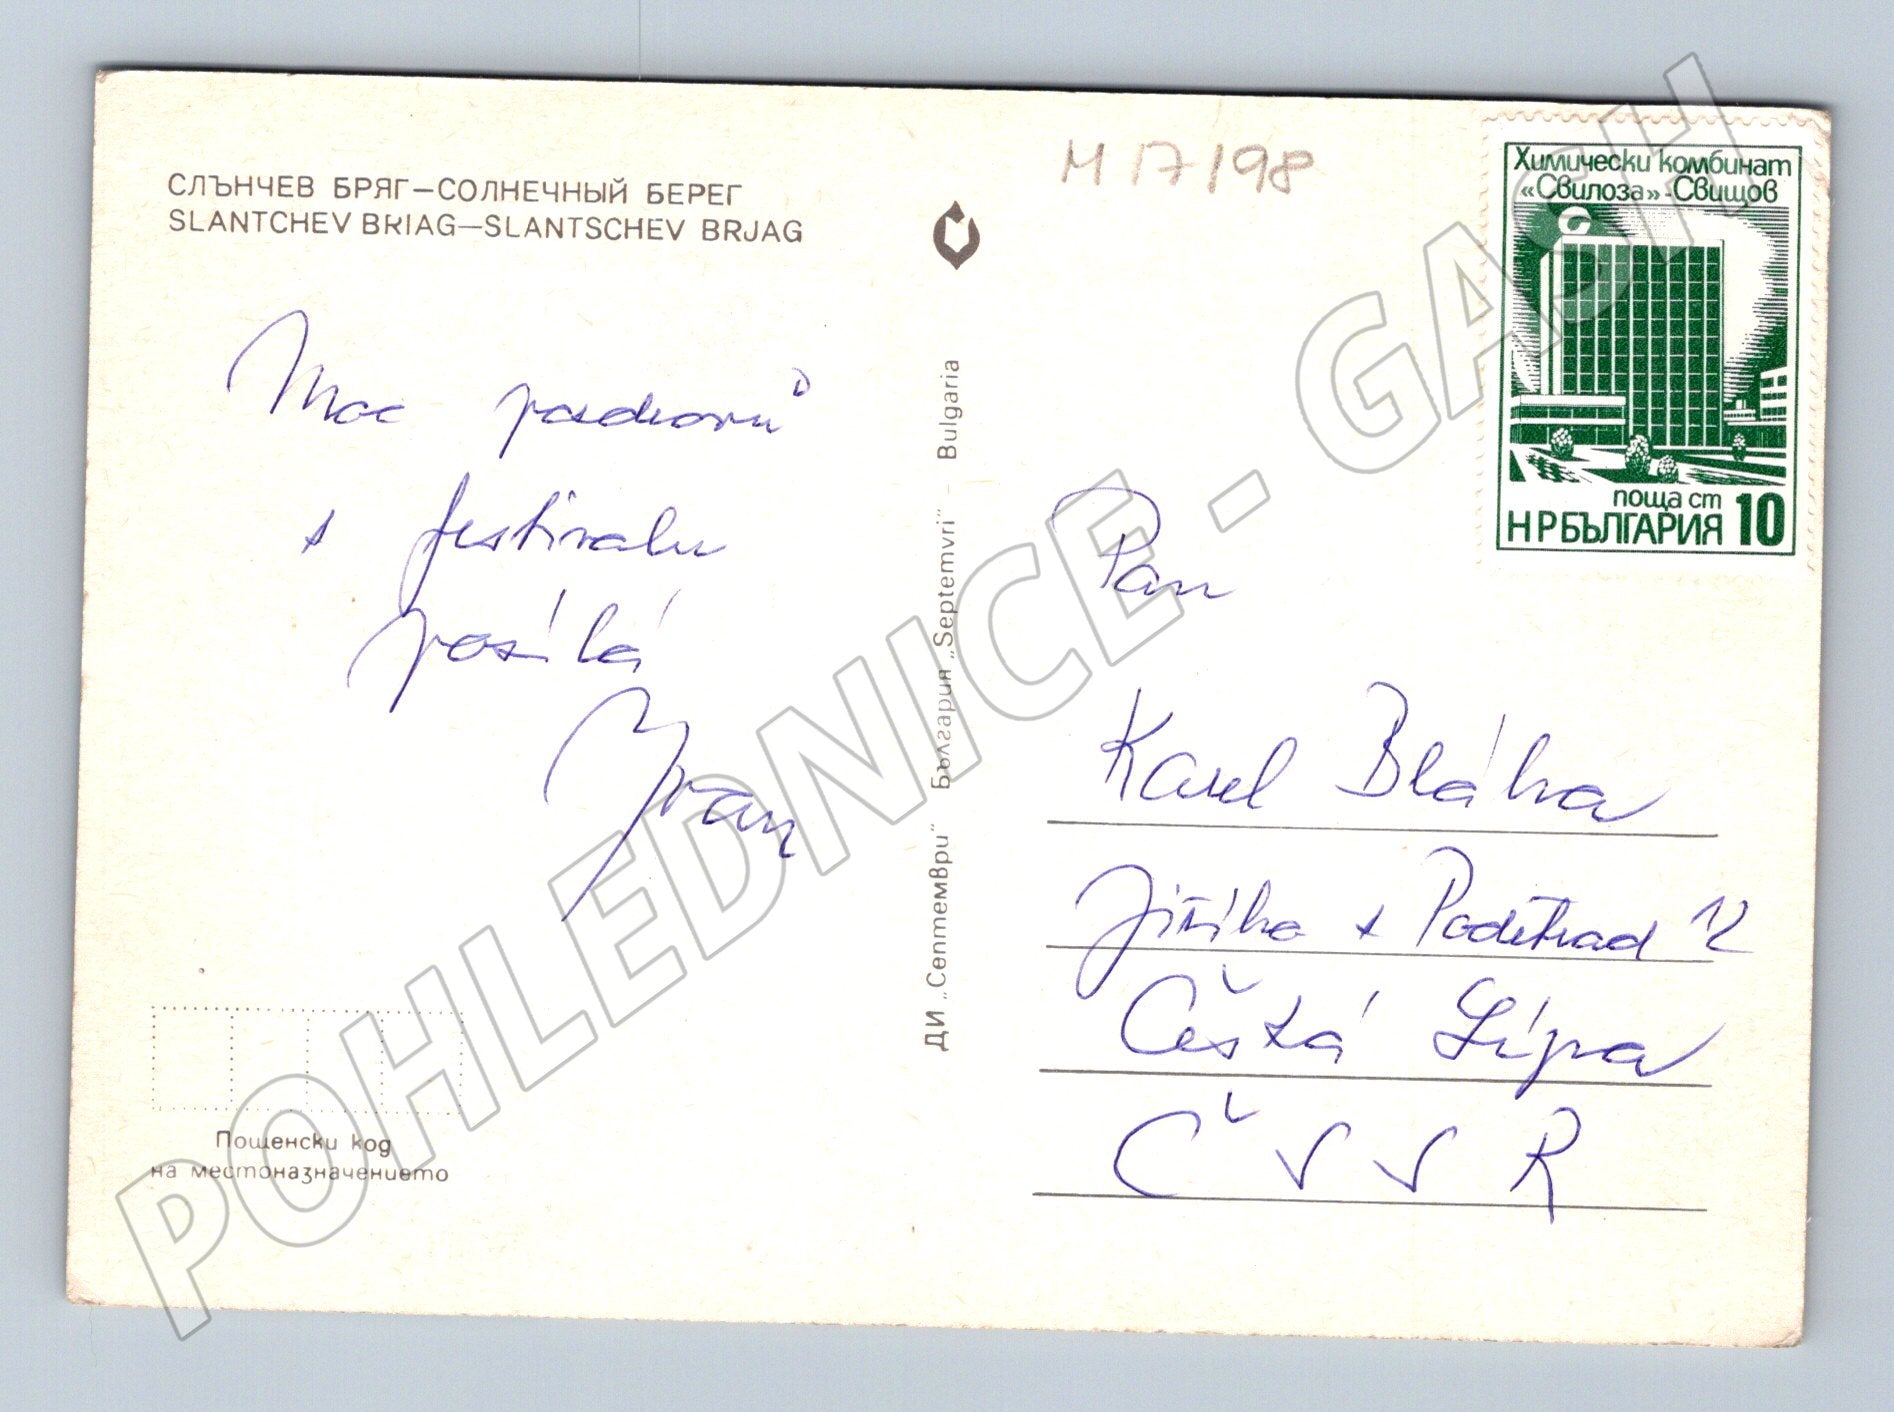 СЛЪНЧЕВ БРЯГ–СОЛНЕЧНЫЙ БЕРЕГ
SLANTCHEV BRIAG–SLANTSCHEV BRJAG
M 17/98
Химически комбинат
«Свилоза»-Свищов
поща ст 10
НРБЪЛГАРИЯ
Moc pozdravů
z festivalu
posílá
Ivan
ДИ „Септември" България „Septemvri" – Bulgaria
Pan
Karel Bláha
Jiřího z Poděbrad 12
Česká Lípa
ČSSR
Пощенски код
на местоназначението
POHLEDNICE - GASH